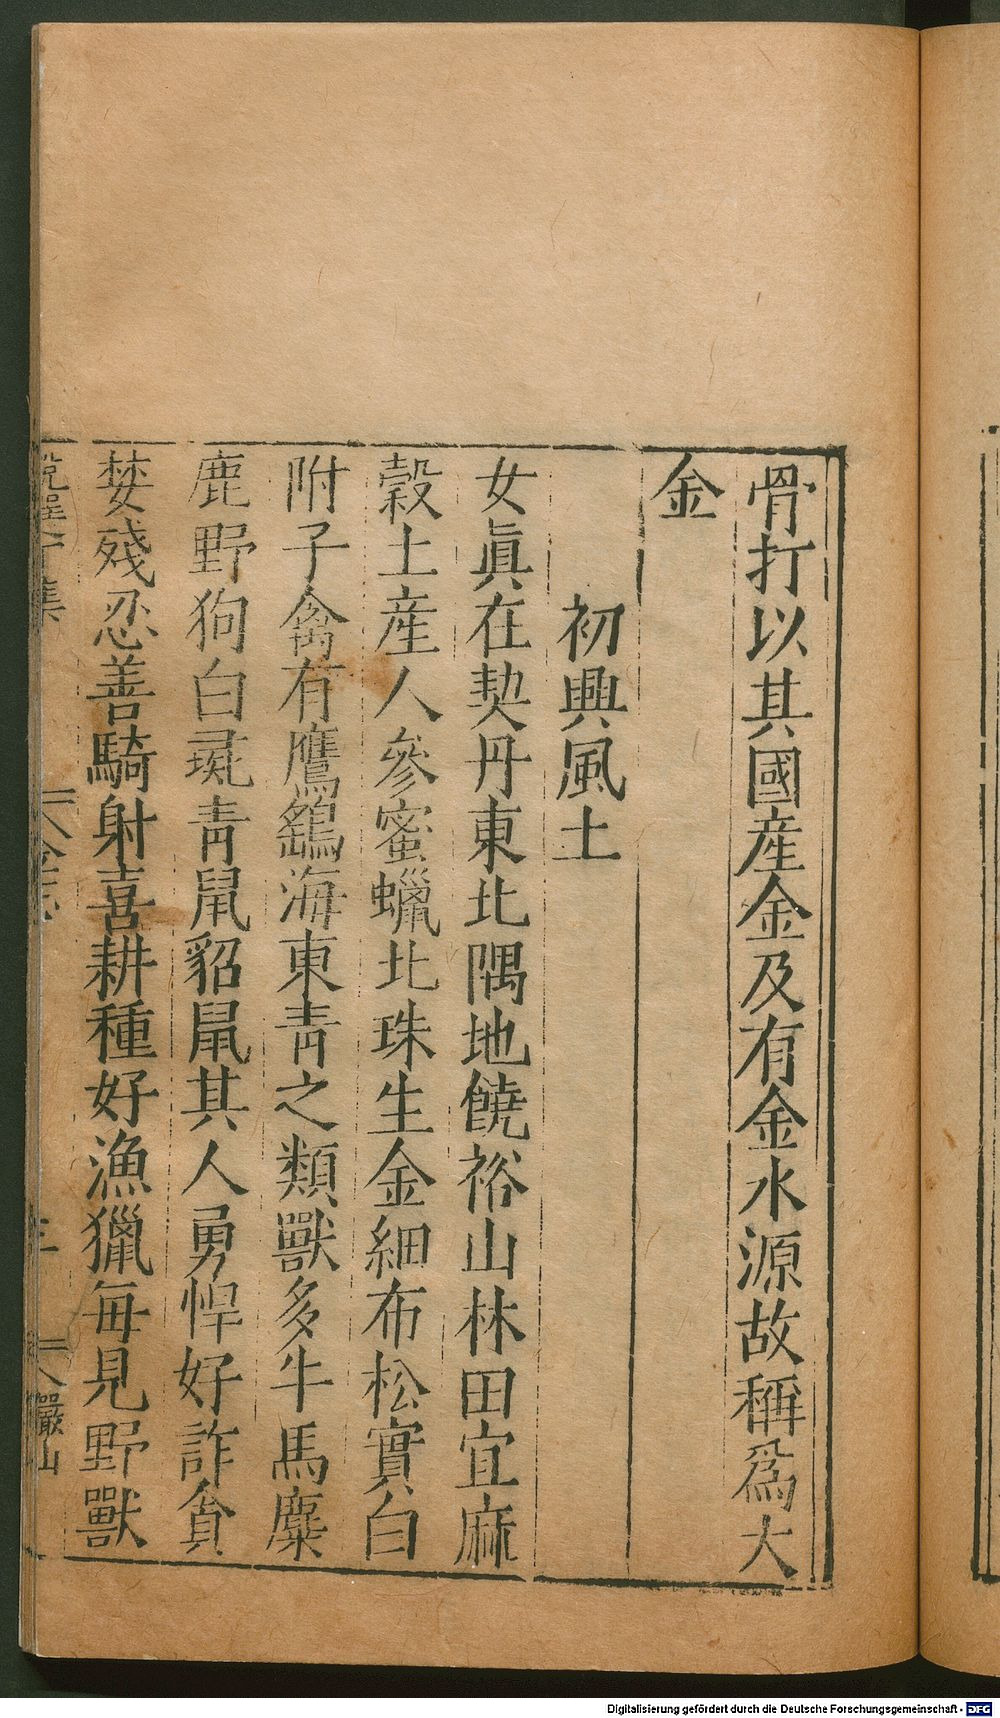 骨打以其國産金及有金水源故稱爲大
金
初興風土
女眞在契丹東北隅地饒裕山林田宜麻
穀土産人參蜜蠟北珠生金細布松實白
附子禽有鷹鷂海東青之類獸多牛馬麋
鹿野狗白彘青鼠貂鼠其人勇悍好詐貪
婪殘忍善騎射喜耕種好漁獵每見野獸
金志
三
巖山
Digitalisierung gefördert durch die Deutsche Forschungsgemeinschaft - DFG